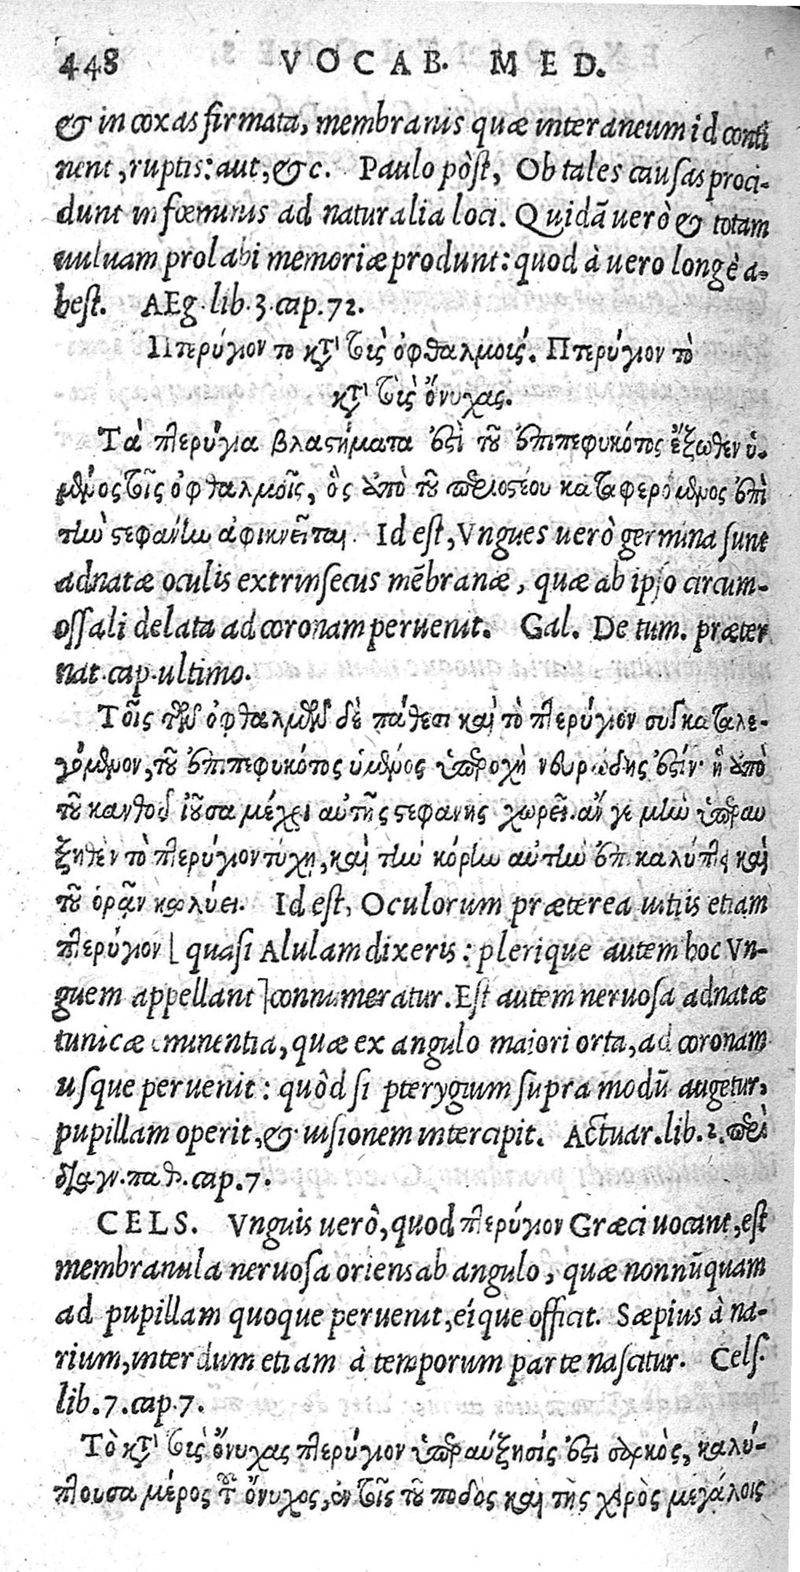 448 VOCAB. MED.
& in coxas firmata, membranis quæ interaneum id conti
nent, ruptis: aut, &c. Paulo pòst, Ob tales causas proci-
dunt in fœminis ad naturalia loci. Quidā uerò & totam
uuluam prolabi memoriæ produnt: quod à uero longè a-
best. AEg. lib. 3. cap. 72.
Πτερύγιον το κτ' τοὺς ὀφθαλμούς. Πτερύγιον τὸ
κτ' τοὺς ὄνυχας.
Τὰ πτερύγια βλαστήματα ἐστὶ τοῦ ἐπιπεφυκότος ἔξωθεν ὑ-
μένος τοῖς ὀφθαλμοῖς, ὃς ἀπὸ τοῦ περιοστέου καταφερόμενος ἐπὶ
τὴν στεφάνην ἀφικνεῖται. Id est, Vngues uerò germina sunt
adnatæ oculis extrinsecus mēbranæ, quæ ab ipso circum-
ossali delata ad coronam peruenit. Gal. De tum. præter
nat. cap. ultimo.
Τοῖς τῶν ὀφθαλμῶν δὲ πάθεσι καὶ τὸ πτερύγιον συγκαταλε-
γόμενον, τοῦ ἐπιπεφυκότος ὑμένος ὑπεροχὴ νευρώδης ἐστίν· ἣ ἀπὸ
τοῦ κανθοῦ ἰοῦσα μέχρι αὐτῆς στεφάνης χωρεῖ. ἂν γε μὴν ὑπεραυ
ξηθὲν τὸ πτερύγιον τύχῃ, καὶ τὴν κόρην αὐτὴν ἐπικαλύπτει καὶ
τοῦ ὁρᾷν κωλύει. Id est, Oculorum præterea uitiis etiam
πτερύγιον [ quasi Alulam dixeris: plerique autem hoc Vn-
guem appellant ] connumeratur. Est autem neruosa adnatæ
tunicæ eminentia, quæ ex angulo maiori orta, ad coronam
usque peruenit: quôd si pterygium supra modū augetur,
pupillam operit, & uisionem intercipit. Actuar. lib. 2. περὶ
διαγν. παθ. cap. 7.
CELS. Vnguis uerò, quod πτερύγιον Græci uocant, est
membranula neruosa oriens ab angulo, quæ nonnūquam
ad pupillam quoque peruenit, eíque officit. Sæpius à na-
rium, interdum etiam à temporum parte nascitur. Cels.
lib. 7. cap. 7.
Τὸ κτ' τοὺς ὄνυχας πτερύγιον ὑπεραύξησίς ἐστι σαρκὸς, καλύ-
πτουσα μέρος τοῦ ὄνυχος, ἐν τοῖς τοῦ ποδὸς καὶ τῆς χειρὸς μεγάλοις